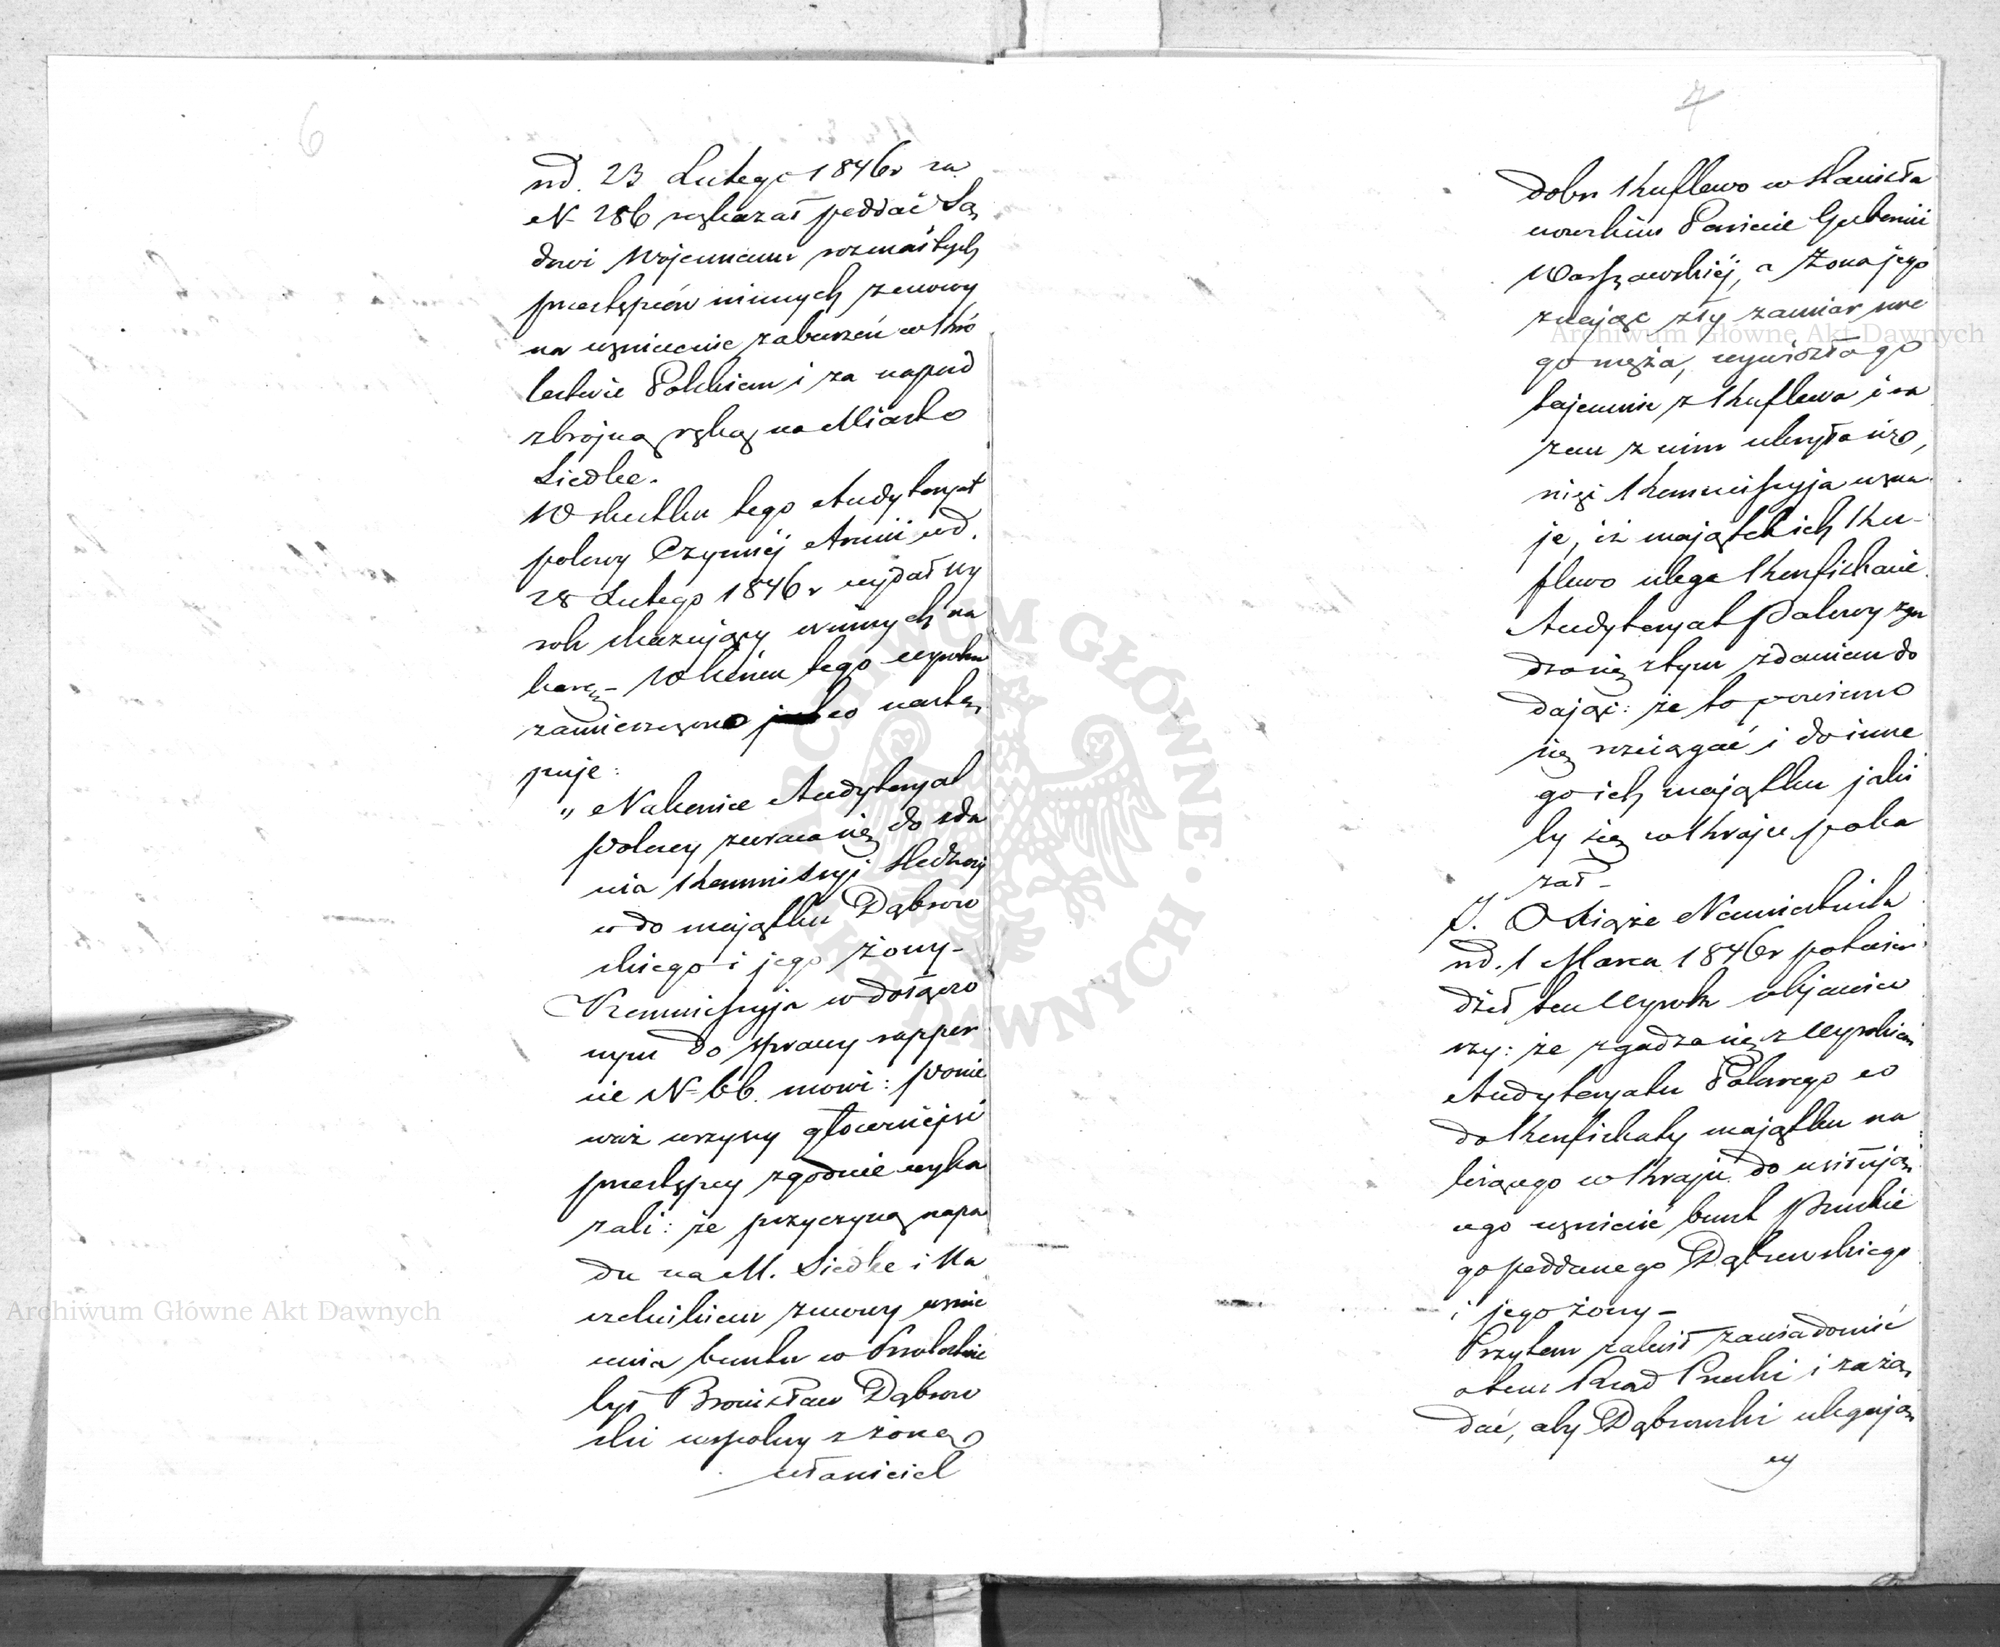 6
nd. 23 Lutego 1846r za
N 286 rozkazał poddać Są
dowi Wojennemu rozmaitych
przestępców winnych zmowy
na wzniecenie zaburzeń w Kró
lestwie Polskiem i za napad
zbrojną ręką na Miasto
Siedlce.
W skutku tego Audytoryat
polowy Czynnéj Armii nd.
28 Lutego 1846 r wydał wy
rok skazujący winnych na
karę – W końcu tego wyroku
zamieszczono jako nastę
puje:
„ Nakoniec Audytoryat
Polowy zwraca się do zda
nia Kommissyi Śledczéj
w do majątku Dąbrow
skiego i jego żony –
Kommissyja w dołączo
nym do sprawy rappor
cie N 66. mówi: ponie
waż wszyscy główniejsi
przestępcy zgodnie wyka
zali: że przyczyną napa
du na M. Siedlce i Na
czelnikiem zmowy wznie
cenia buntu w Królestwie
był Bronisław Dąbrow
ski wspólny z żoną
właściciel
7
dobr Kuflewo w Stanisła
wowskim Powiecie Gubernii
Warszawskiéj, a Żona jego
znając zły zamiar swe
go męża, wywiozła go
tajemnie z Kuflewa i ra
zem z nim ukryła się,
niżéj Kommissyja uzna
je, iż majątek ich Ku-
flewo ulega Konfiskacie.
Audytoryat Polowy zga
dza się z tym zdaniem do
dając: że to powinno
się rozciągać i do inne
go ich majątku jaki
by się w Kraju poka
zał –
J. O Książe Namiestnik
nd. 1 Marca 1846r potwier
dził ten Wyrok objawiw
szy: że zgadza się z Wyrokiem
Audytoryatu Polowego co
do Konfiskaty majątku na
leżącego w Kraju do usiłują
cego wzniecić bunt Pruskie
go poddanego Dąbrowskiego
i jego żony –
Przytem zalecił zawiadomić
o tem Rząd Pruski i zażą
dać, aby Dąbrowski ulegają
cy
Archiwum Główne Akt Dawnych
Archiwum Główne Akt Dawnych
ARCHIWUM GŁÓWNE AKT DAWNYCH